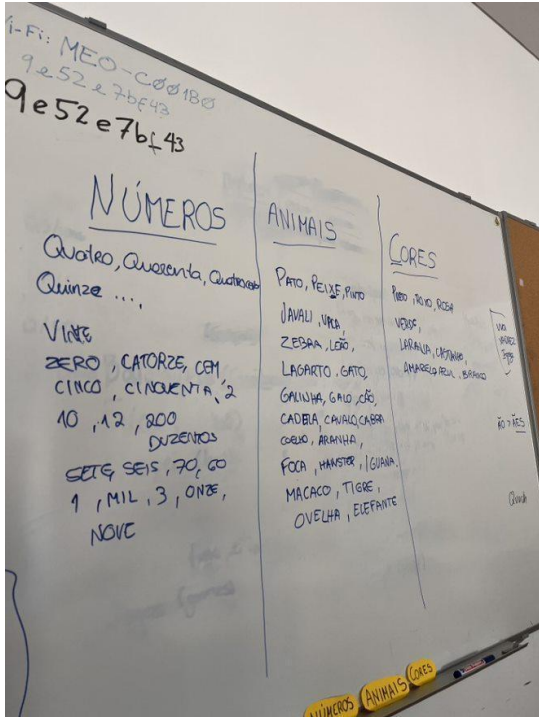 Wi-Fi: MEO-C00180
9e52e7bf43
9e52e7bf43
NÚMEROS
Quatro, Quarenta, Quatrocentos
Quinze ....,
VINTE
ZERO, CATORZE, CEM,
CINCO, CINQUENTA, 2
10, 12, 200
DUZENTOS
SETE, SEIS, 70, 60
1, MIL, 3, ONZE,
NOVE
ANIMAIS
PATO, PEIXE, PINTO
JAVALI, VACA,
ZEBRA, LEÃO,
LAGARTO, GATO,
GALINHA, GALO, CÃO,
CADELA, CAVALO, CABRA
COELHO, ARANHA,
FOCA, HAMSTER, IGUANA.
MACACO, TIGRE,
OVELHA, ELEFANTE
CORES
PRETO, ROXO, ROSA
VERDE,
LARANJA, CASTANHO,
AMARELO, AZUL, BRANCO
ÃO > ÃES
NÚMEROS
ANIMAIS
CORES